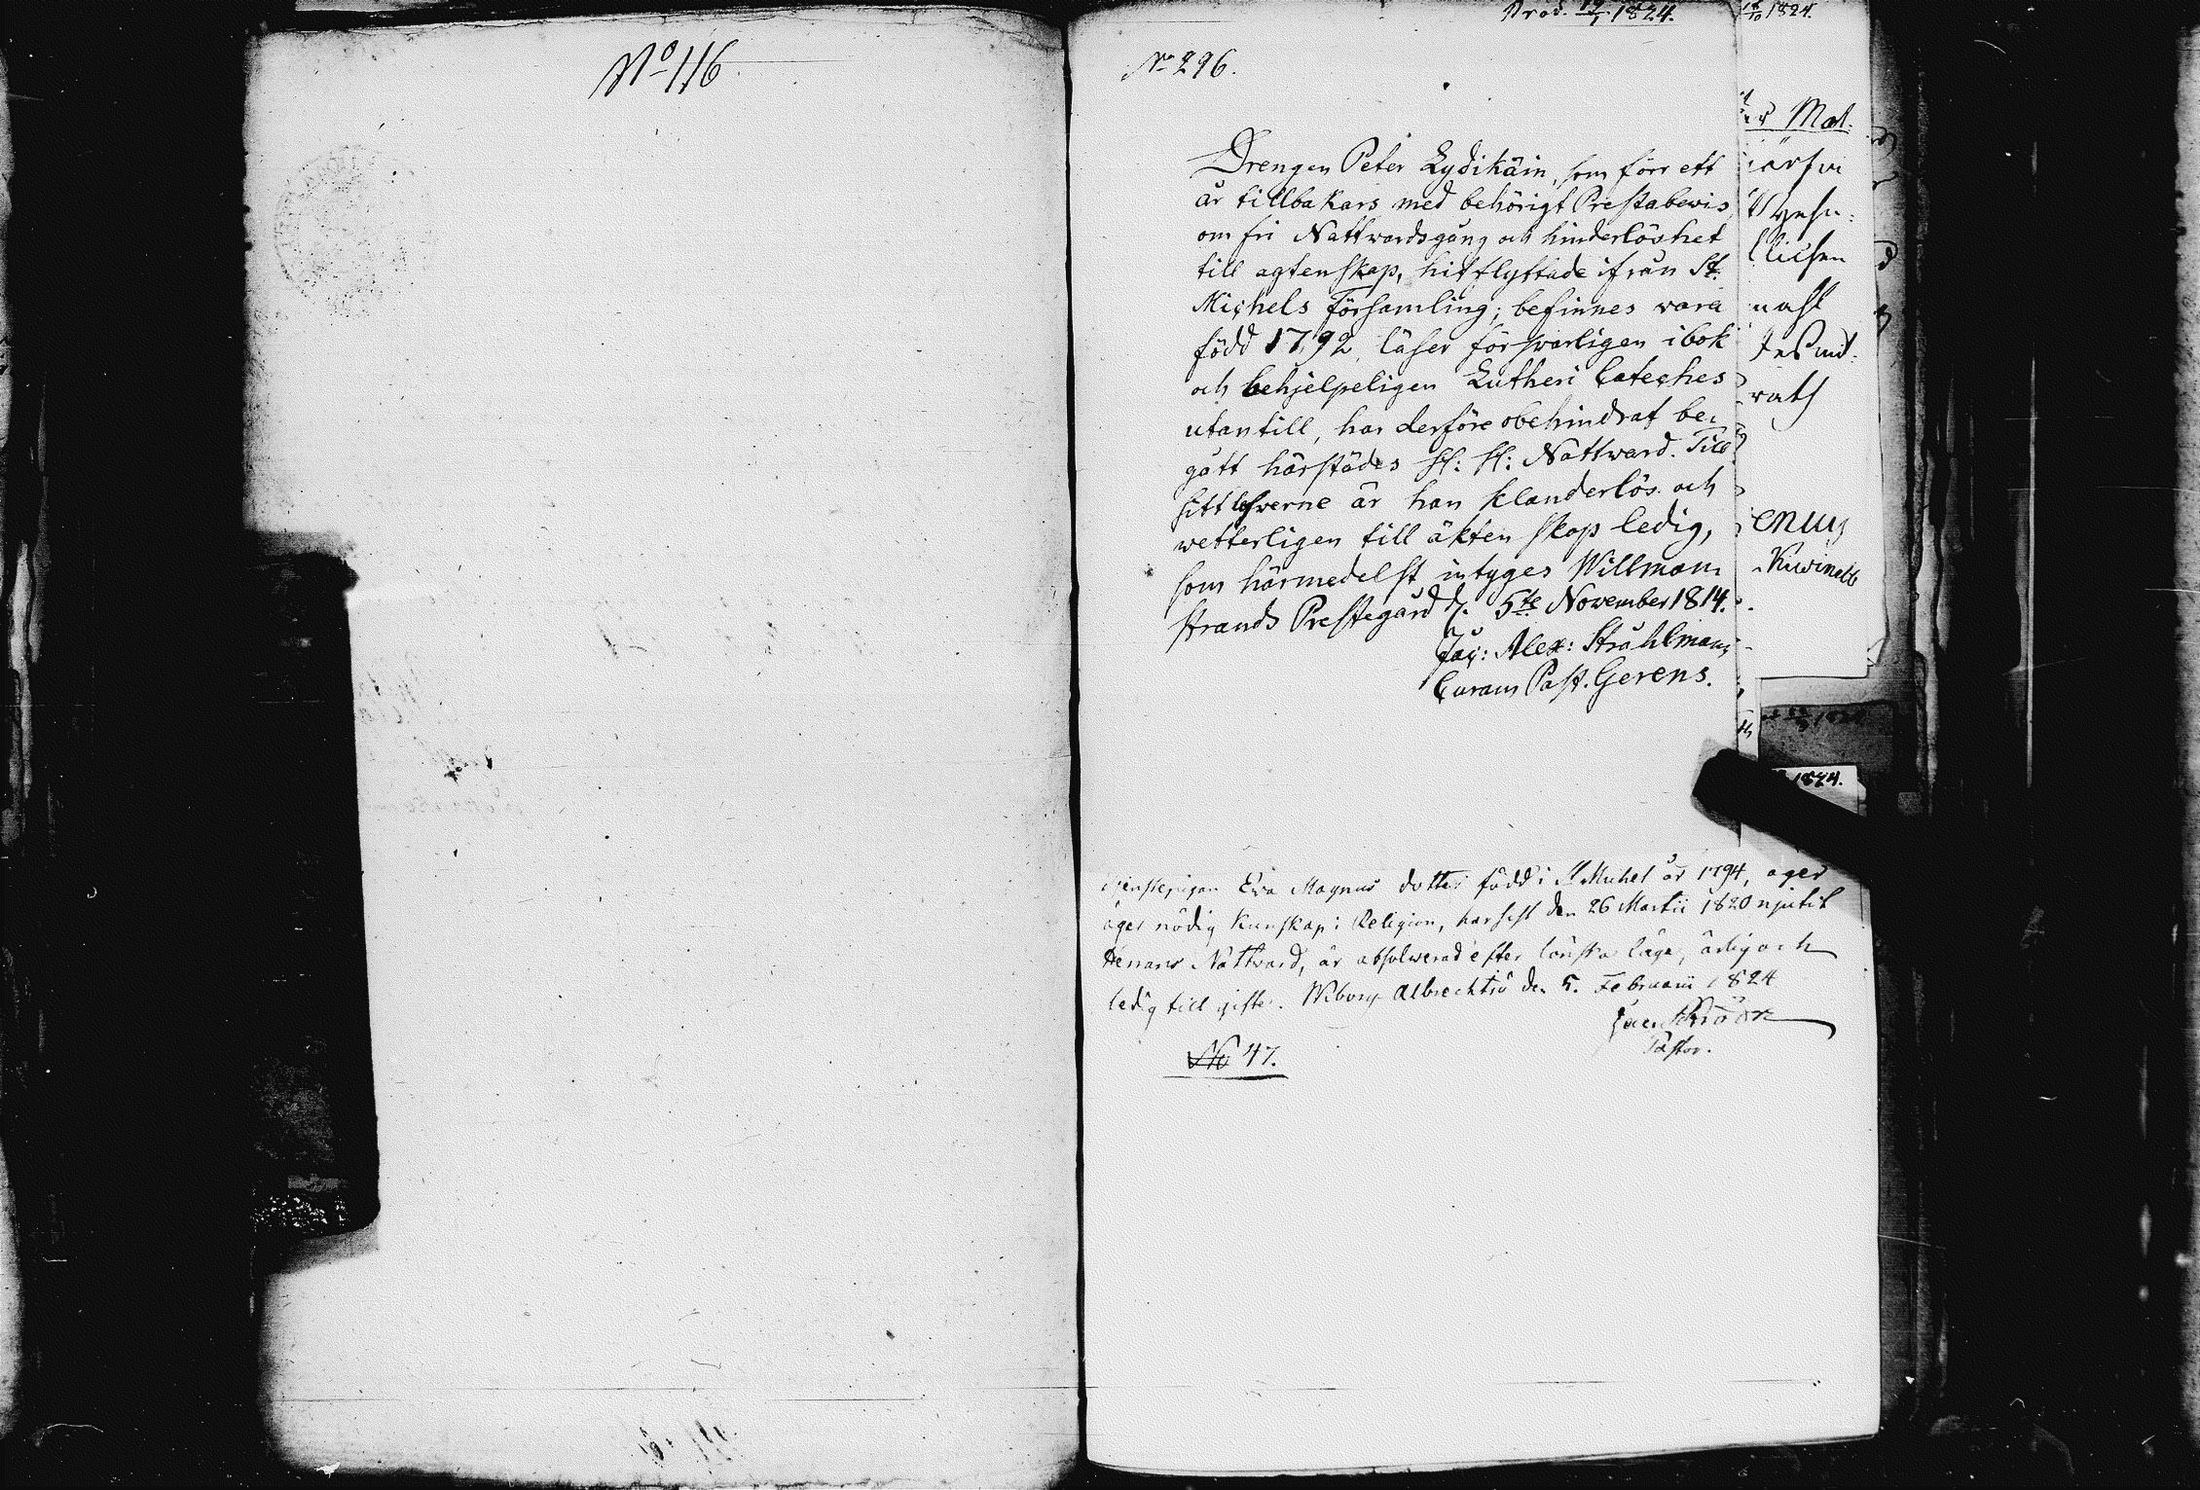 No 116
Prod. 19/1 1824.
No 296.
Drengen Peter Lydikäin, som förr ett
år tillbakars med behörigt Prestabewis
om fri Nattwardsgång och hinderlöshet
till agtenskap, hitflyttade ifrån St.
Michels Församling; befinnes wara
född 1792, läser förswarligen i bok
och behjelpeligen Lutheri Cateches
utantill, har derföre obehindrat be-
gått härstädes H: H: Nattward. Till
sitt lefwerne är han klanderlös och
wetterligen till äktenskap ledig,
som härmedelst intyges Willman-
strands Prestegård d. 5te November 1814.
Jac: Alex: Stråhlman
Curam Past. Gerens.
Eva Magnus dotter född i St Michel år 1794, äger
äger nödig Kunskap i Religion, har sist den 26 Martii 1820 njutit
Herrans Nattvard, är absolwerad efter lönska läge, ärlig och
ledig till gifte. Wiborg Albrechtsö den 5. Februarii 1824
Pastor.
No 47.
1824.
enius
1824.